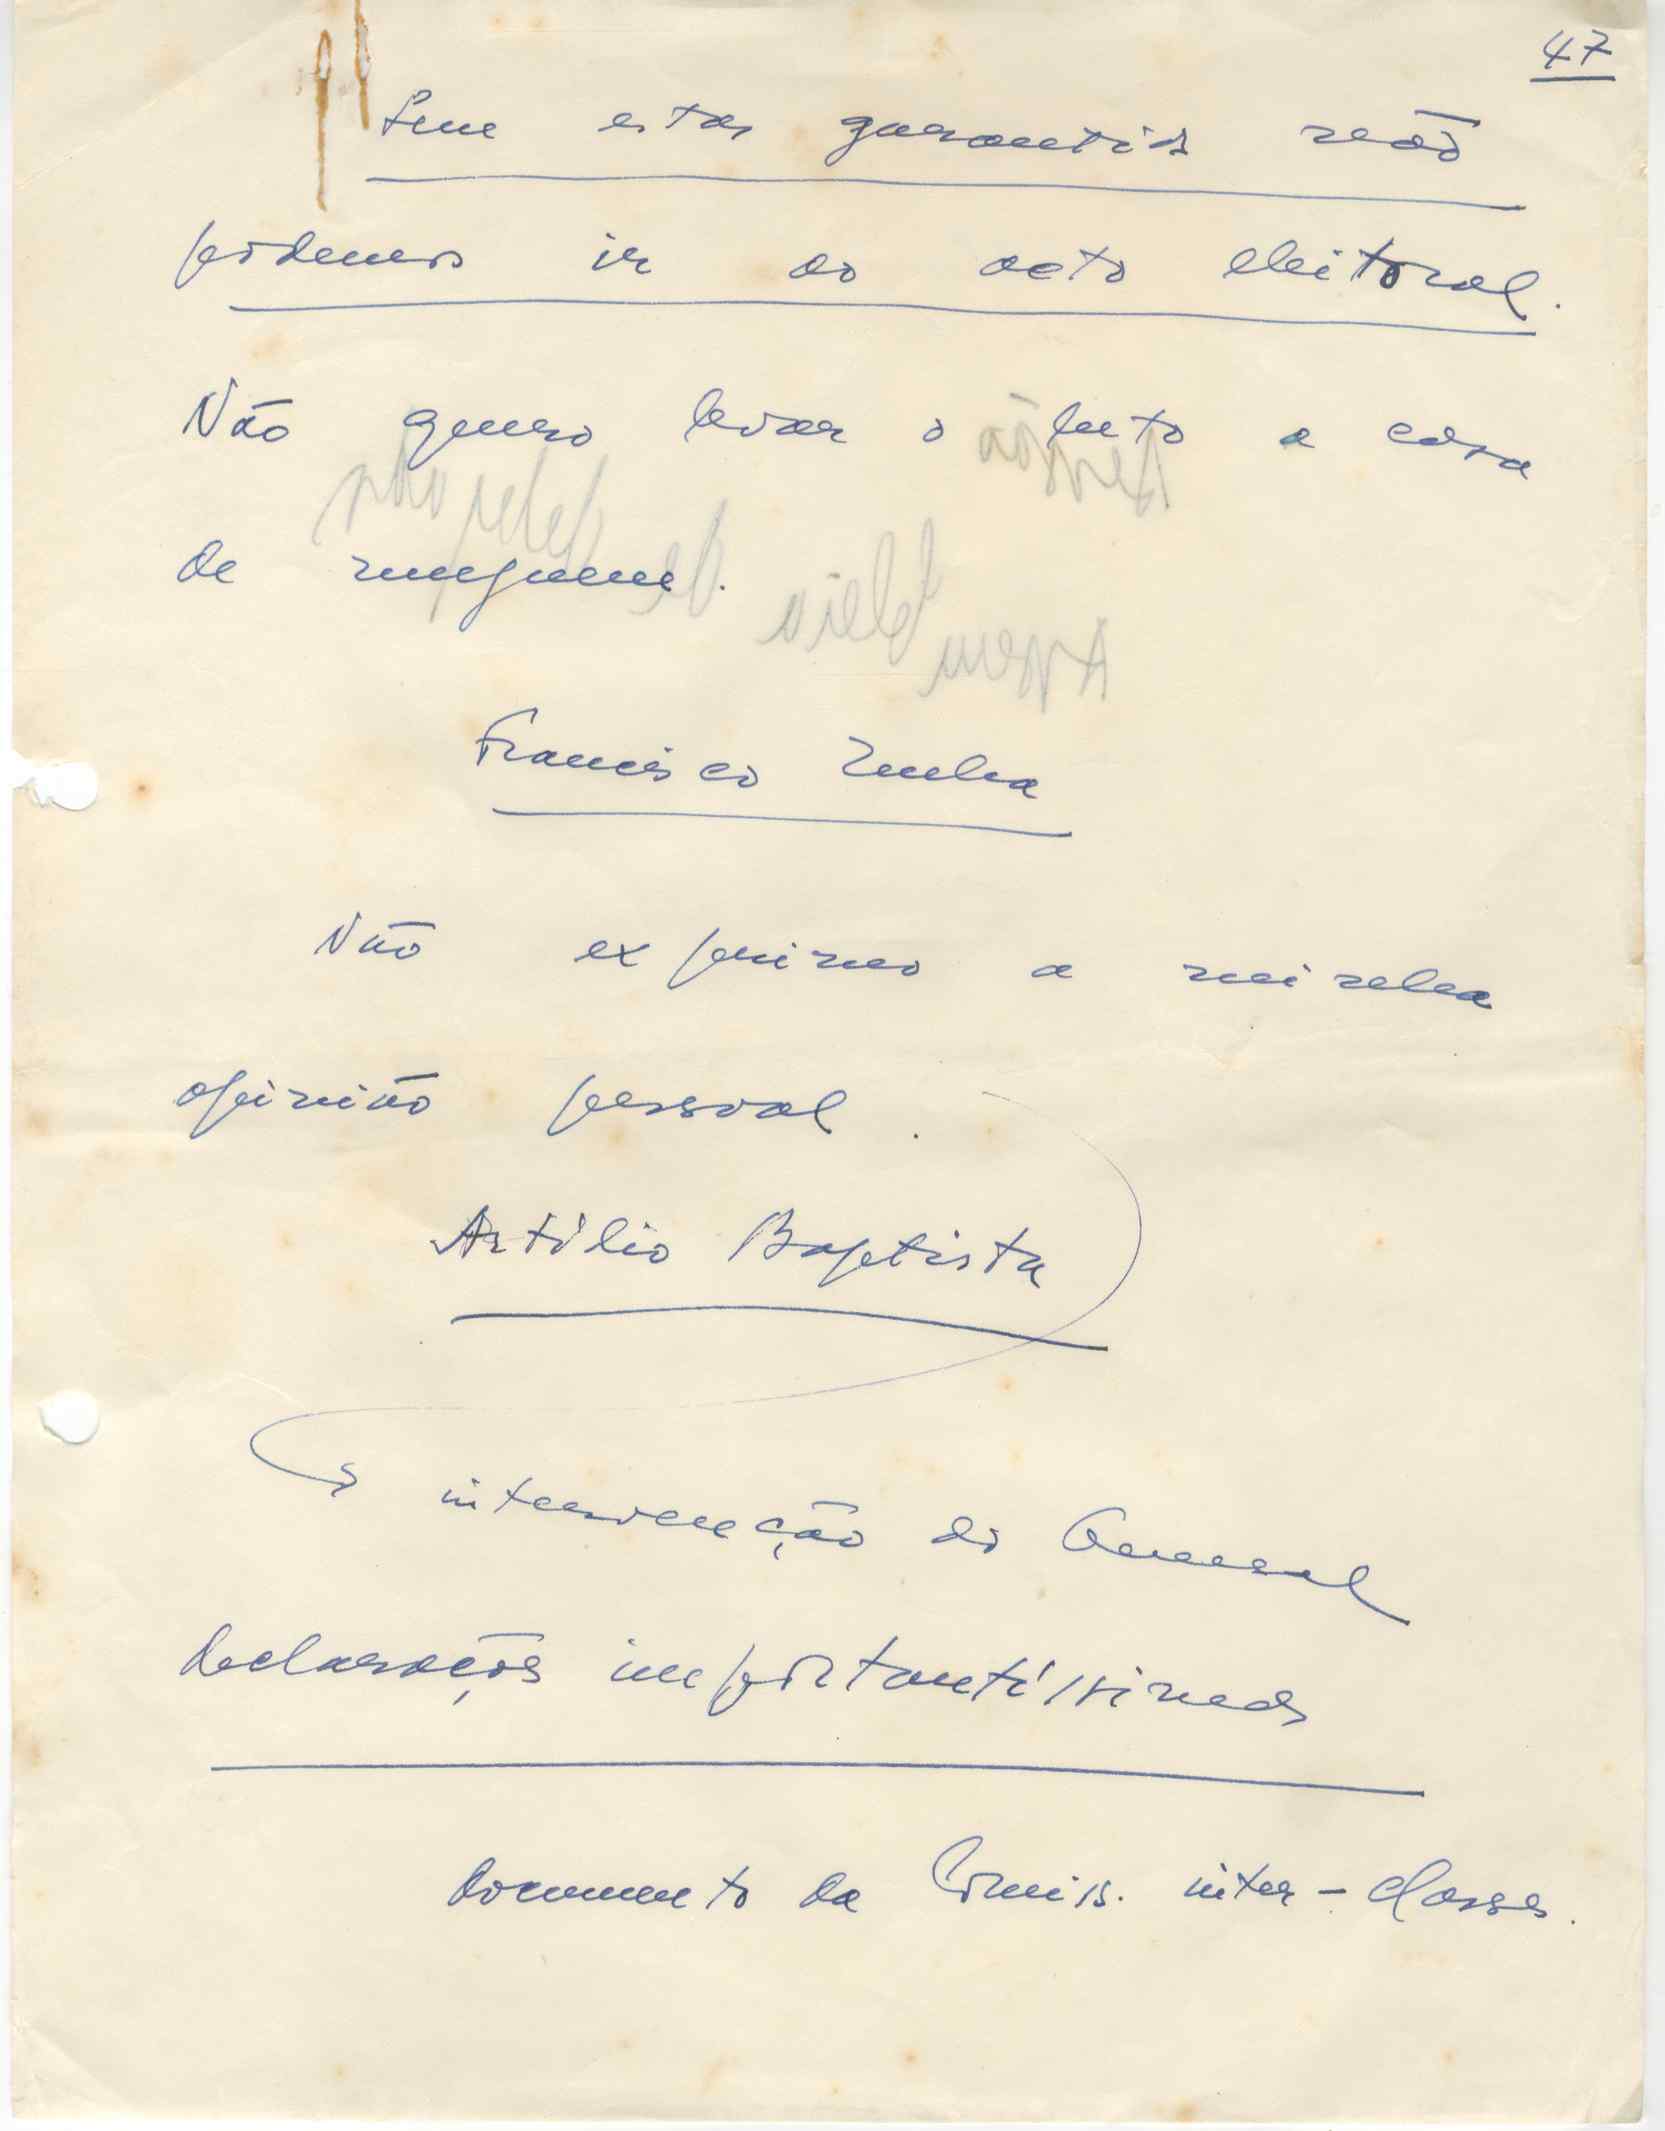 47
Sem estas garantias não
podemos ir ao acto eleitoral.
Não quero levar o luto a casa
de ninguem.
Francisco Cunha
Não exprimo a minha
opinião pessoal.
Artílio Baptista
intervenção do General
declarações importantíssimas
documento da Comiss. inter-classes.